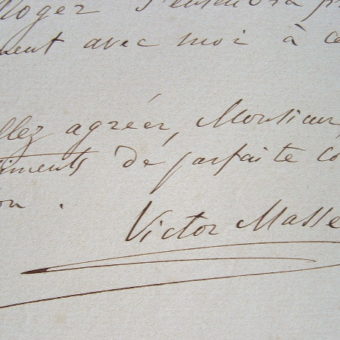 Roger s'entendra
ment avec moi à ce
llez agréer, Monsieur,
timents de parfaite co
on.
Victor Masse